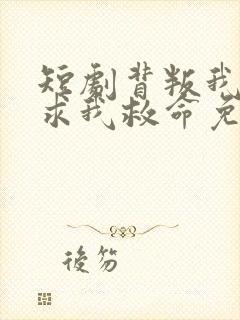 短劇背叛我
求我救命免
後笏